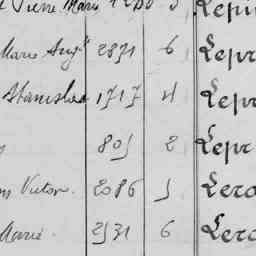 Pierre Marie
Marie Aug. 2871 6 Lepr
Stanislas 1717 4 Lepr
805 2 Lepr
Victor. 2086 5 Lero
Marie. 2531 6 Lero